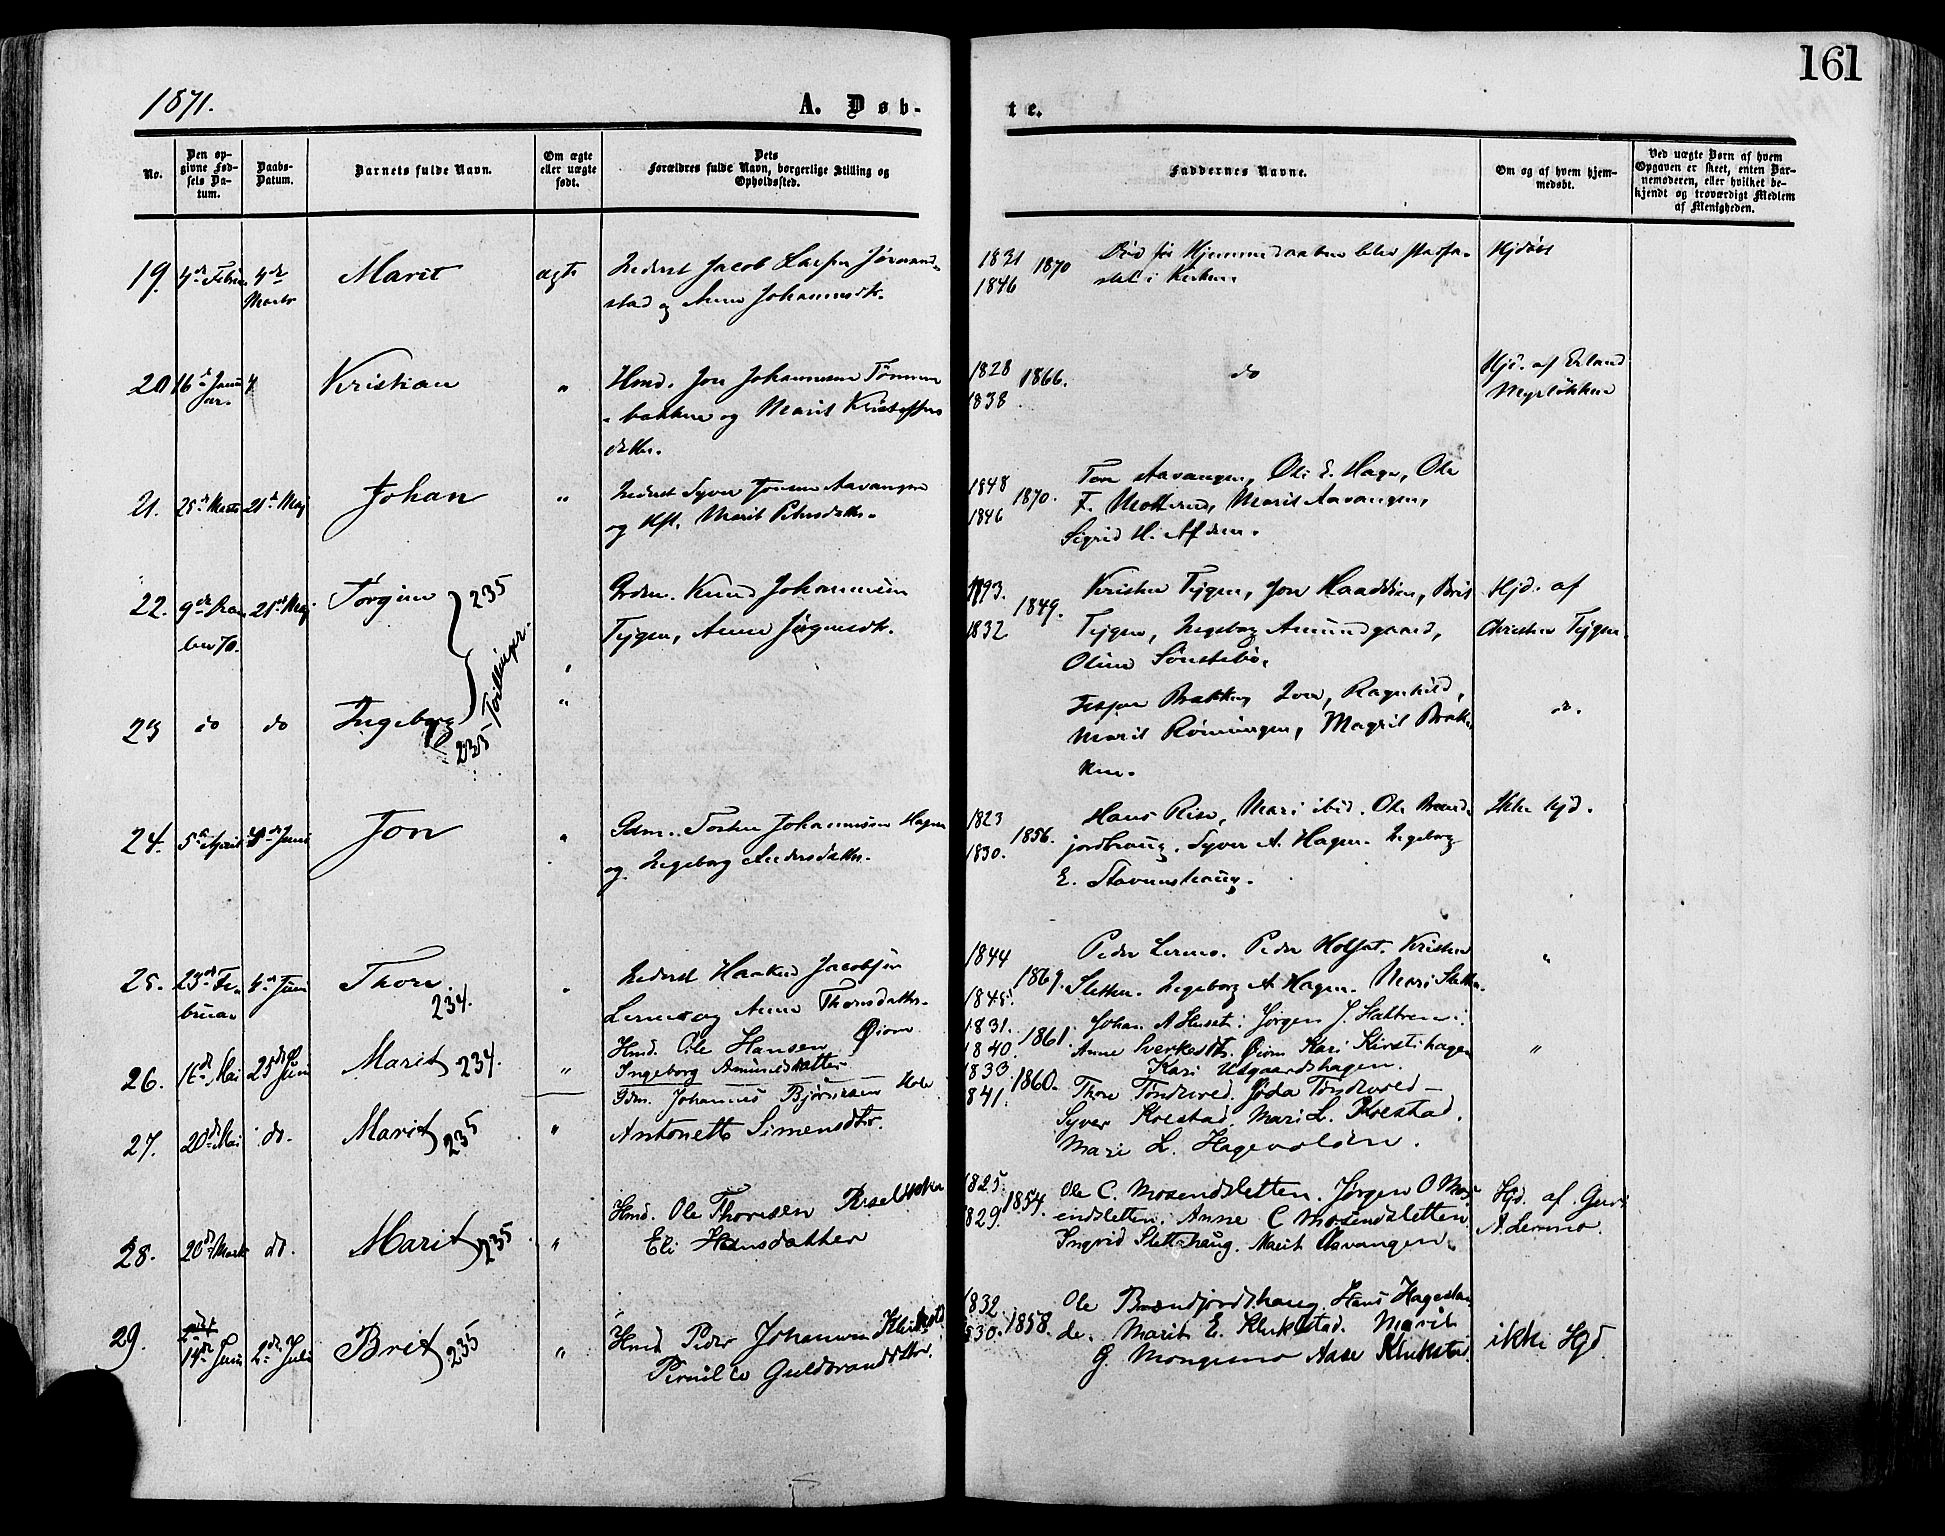 1871.
A. Døb-
te.
161
No.
Den op-
givne Fød-
sels Da-
tum.
Daabs-
Datum.
Barnets fulde Navn.
Om ægte
eller uægte
født.
Dets
Forældres fulde Navn, borgerlige Stilling og
Opholdssted.
Faddernes Navne.
Om og af hvem hjem-
medøbt.
Ved uægte Børn af hvem
Opgaven er skeet, enten Bar-
nemoderen, eller hvilket be-
kjendt og troværdigt Medlem
af Menigheden.
19. 4de Febr. 4de
Marts
Marit
ægte
Inderst Jacob
stad og Anne Johannesdtr.
1831
1846
1870
Død før Hjemmedaaben blev stadfæ-
stet i Kirken.
Hjdøbt
20 16de Janu
ar.
Kristian
"
Hmd. Jon Johannesen
bakken og Marit Kristoffers
datter.
1828
1838
1866.
do
Hjd. af Erland
Myrløkken
21. 25de Marts 21de Maj
Johan
"
Inderst Syver Jonsen Aavangen
og Kst. Marit Pedersdatter.
1848
1846
1870.
Tore Aavangen, Ole E. Hage, Ole
F. Marit Aavangen,
Sigrid H.
22. 9de
ber 70.
21de Maj.
Jørgine
235
Tvillinger.
"
Gdm. Knud Johannesen
Tejgen, Anne Jørgensdtr.
1793.
1832
1849.
Kristen Tejgen, Jon Brit
Tejgen, Ingeborg Amundgaard,
Oline Sønstebø,
Hjd. af
Christen Tejgen.
23 do do
Ingeborg
235
"
Bakken, Iver, Ragnhild,
Marit Rønningen, Magnil Brak-
ken.
do.
24. 5te April Juni
Jon
"
Gdm. Torsten Johannesen Hagen
og Ingeborg Andersdatter.
1823
1830.
1856.
Hans Rise, Mari ibid. Ole Brænd-
jordhaug. Syver A. Hagen. Ingeborg
E. Stavenshaug.
Ikke hjd.
25. 23de Fe-
bruar
4de Juni
Thore.
234.
"
Inderst Haaken Jacobsen
Lermo og Anne Thoresdatter.
1844
1845.
1869.
Peder Lermo. Peder Holset. Kristen
Sletten. Ingeborg A. Hagen. Mari Sletten.
"
26. 16de Mai 25de Juni
Marit 234.
"
Hmd. Ole Hansen Øiom
Ingeborg Amundsdatter
1831.
1840.
1861.
Johan A Huset. Jørgen J.
Anne Sverkesdtr. Øiom Kari Kirstihagen
Kari Udgaardshagen.
"
27. 20de Mai do.
Marit 235
"
Gdm. Johannes Bjørnsen Hole
Antonette Simensdtr.
1833
1841.
1860.
Thore Tøndevold. Jøda Tøndevold—
Syver Kolstad. Mari L. Kolstad.
Mari L. Hagevolden.
28. 20de Marts do.
Marit 235
"
Hmd. Ole Thoresen
Eli Hansdatter
1825.
1829.
1854.
Ole C. Mosendsletten. Jørgen O Mos-
endsletten. Anne C Mosendsletten
Ingrid Slettehaug. Marit Aavangen.
Hjd. af Guri
A. Lermo.
29. 14de Juni 2den Juli
Brit 235
"
Hmd Peder Johannesen
Pernille Guldbrandsdtr.
1832.
1830.
1858.
Ole Brændjordshaug. Hans Hagesta-
de. Marit E. Klukstad. Marit
G. Mongsmo Aase Klukstad.
ikke Hjd.